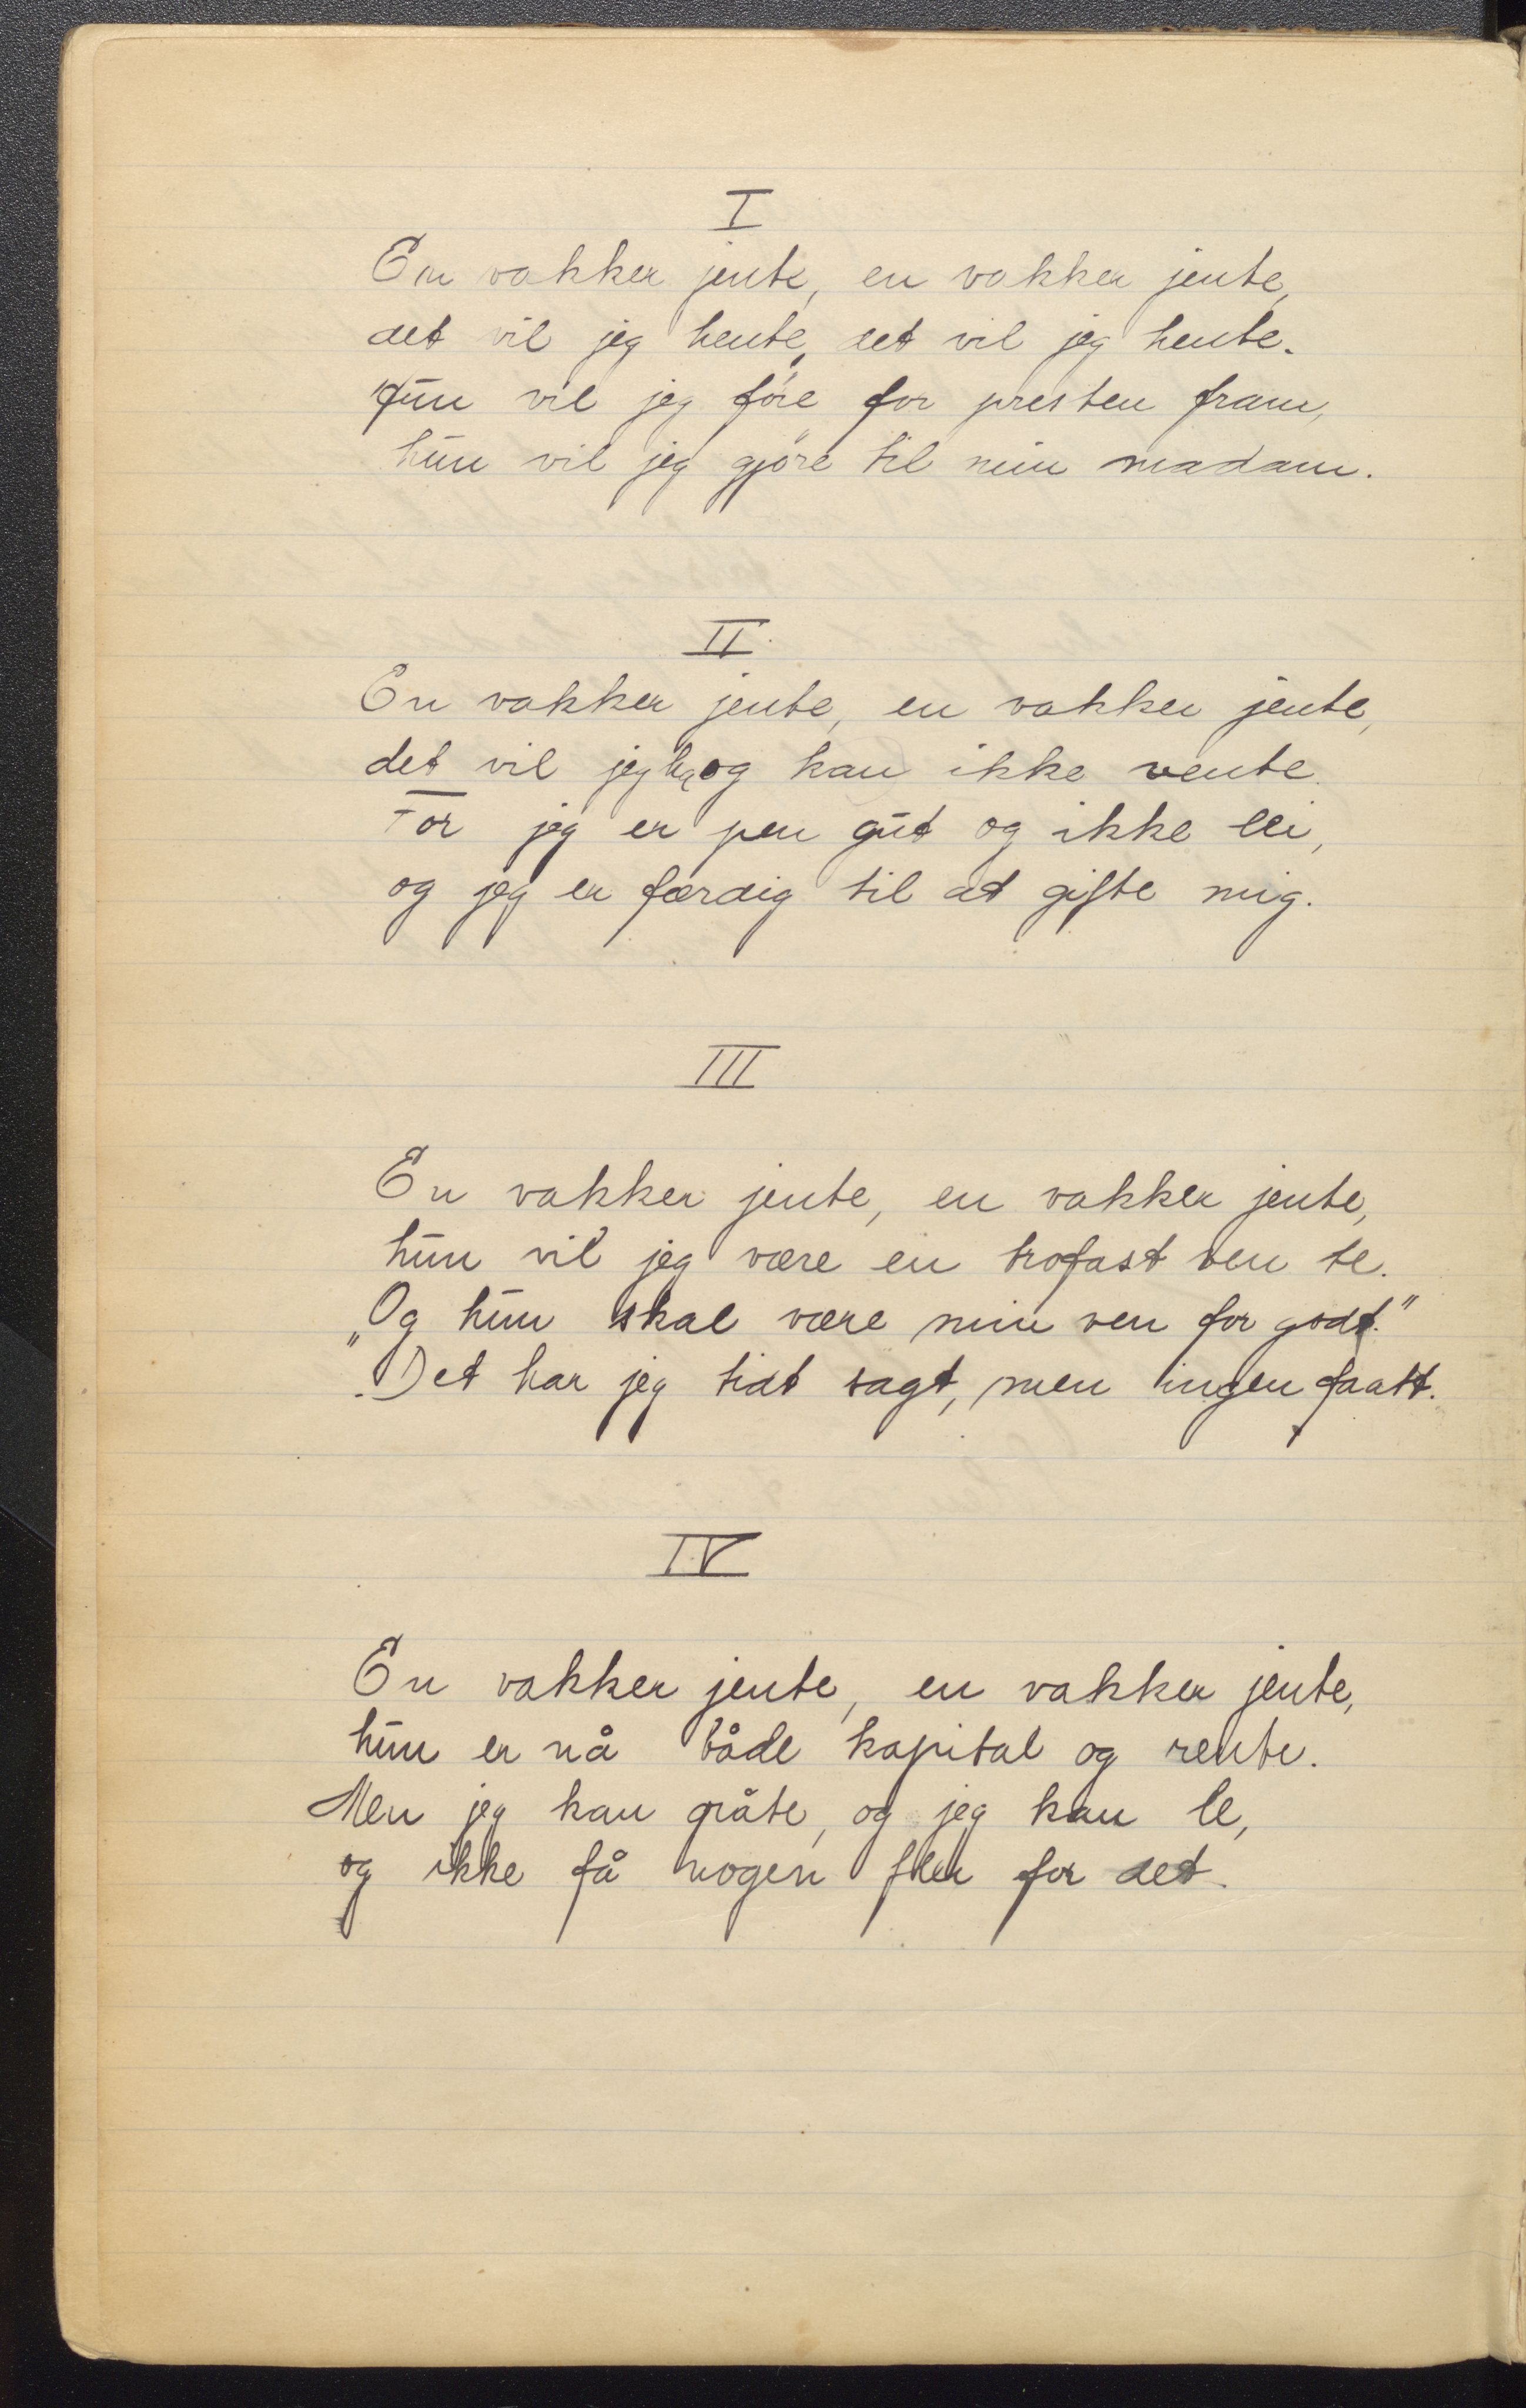 I
En vakker jente, en vakker jente,
det vil jeg hente, det vil jeg hente.
Hun vil jeg føre for presten fram,
hun vil jeg gjøre til min madam.
II
En vakker jente, en vakker jente,
det vil jeg ha og kan ikke vente.
For jeg er pen gut og ikke lei,
og jeg er færdig til at gifte mig.
III
En vakker jente, en vakker jente,
hun vil jeg være en trofast ven te.
"Og hun skal være min ven for godt."
Det har jeg tidt sagt, men ingen faatt.
IV
En vakker jente, en vakker jente,
hun er nå både kapital og rente.
Men jeg kan gråte, og jeg kan le,
og ikke få nogen fler for det.